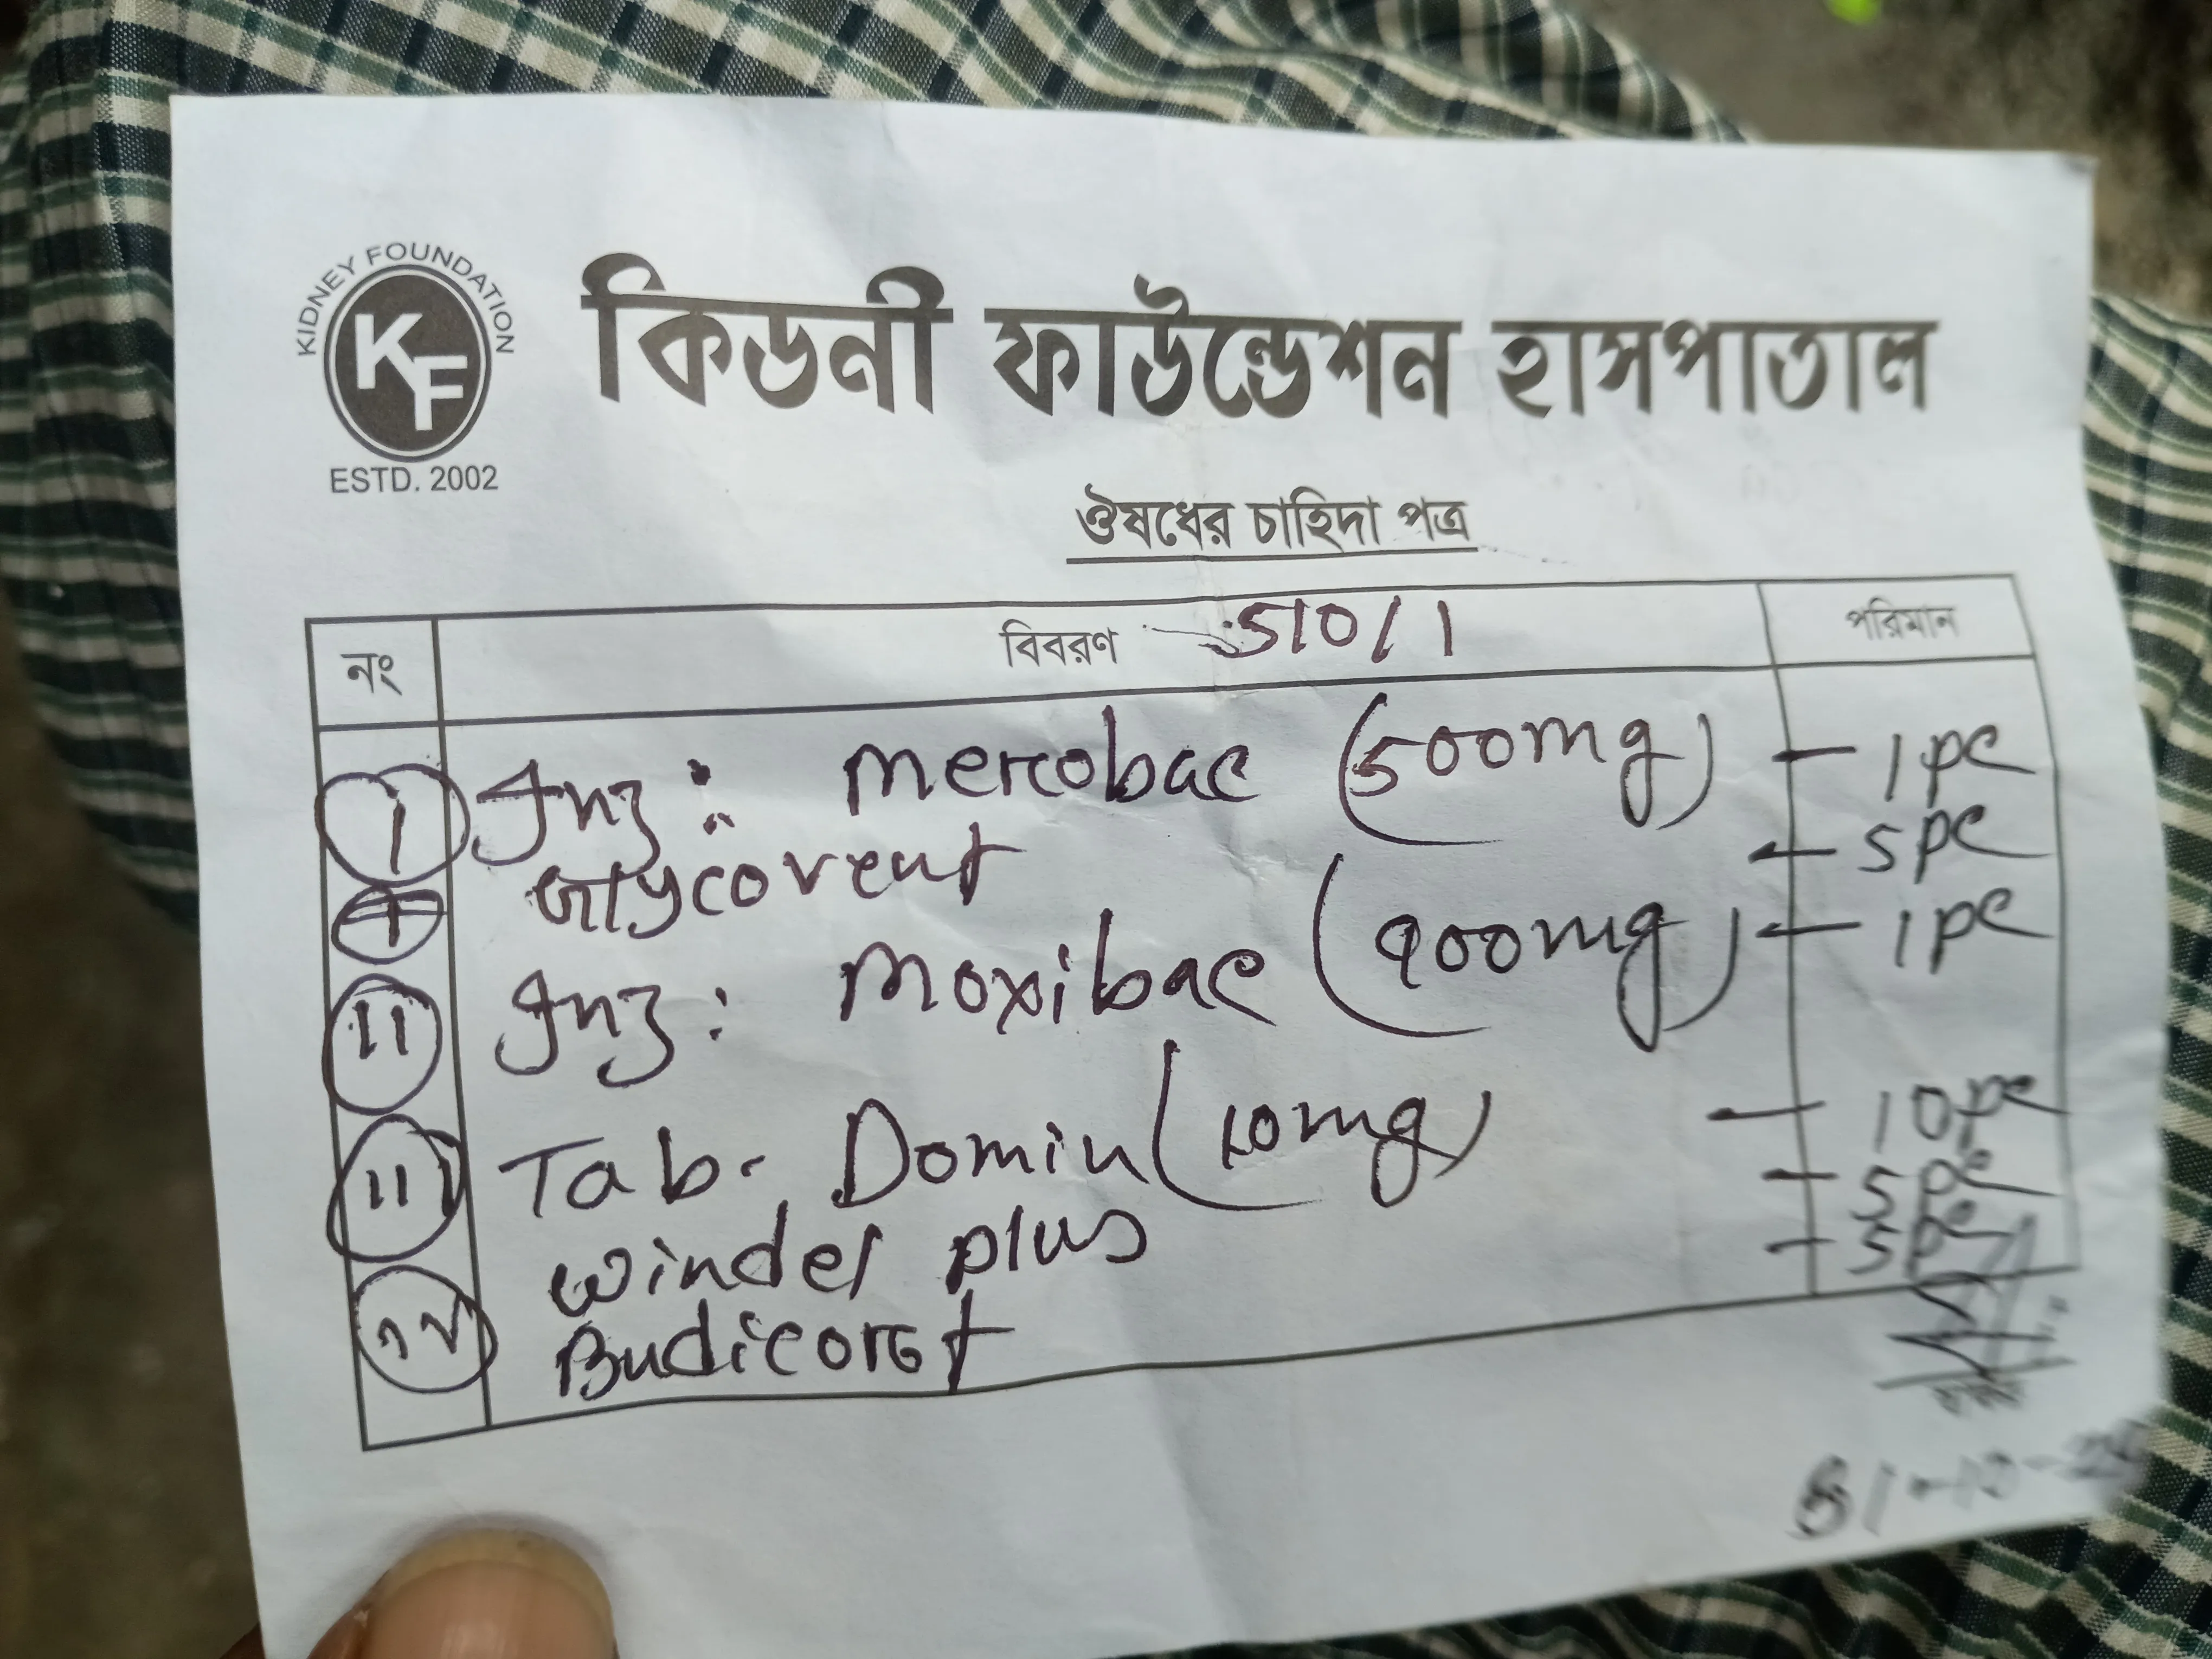 KIDNEY FOUNDATION
KF
ESTD. 2002
কিডনী ফাউন্ডেশন হাসপাতাল
ঔষধের চাহিদা পত্র
নং বিবরণ 510/1 পরিমান
I Inj: Merobac (500mg) - 1 pc
Glycovent - 5 pc
II Inj: Moxibac (400mg) - 1 pc
III Tab. Domin (10mg) - 10 pc
Windel plus - 5 pc
IV Budicort - 5 pc